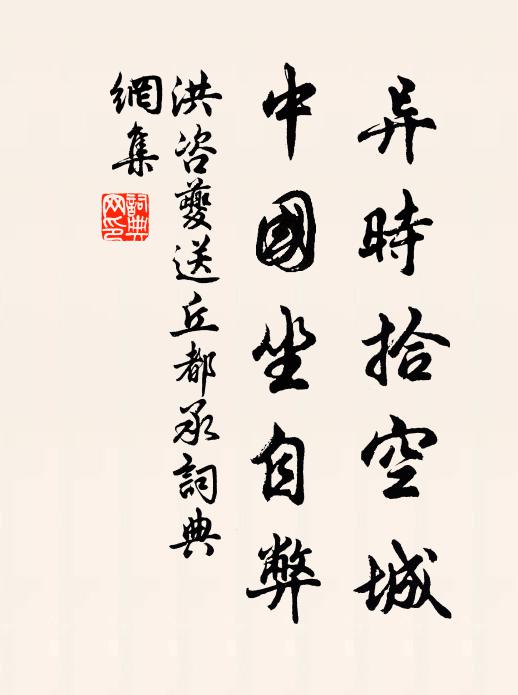 异時拾空城
中國坐自弊
洪咨夔送丘都承詞典
網集
詞典
网印